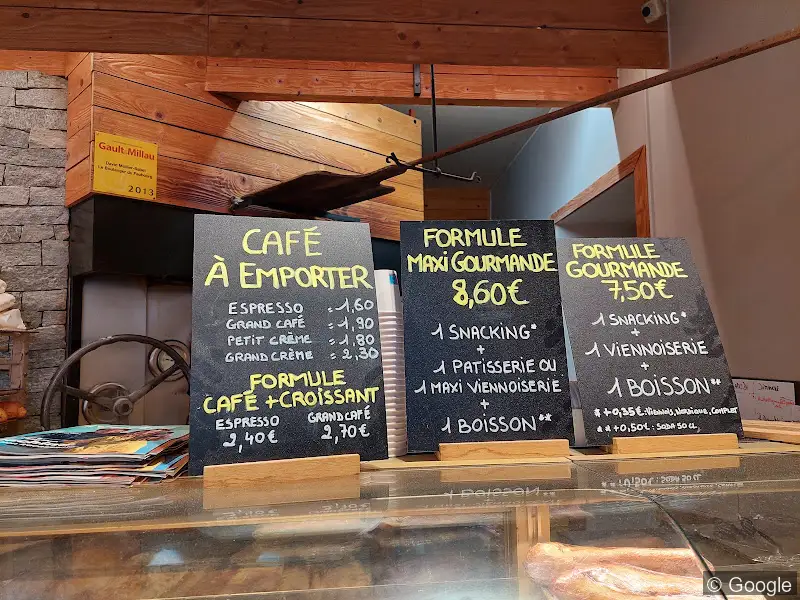 Gault-Millau
2013
CAFÉ
À EMPORTER
ESPRESSO = 1,60
GRAND CAFÉ = 1,90
PETIT CRÈME = 1,80
GRAND CRÈME = 2,30
FORMULE
CAFÉ + CROISSANT
ESPRESSO GRAND CAFÉ
2,40€ 2,70€
FORMULE
MAXI GOURMANDE
8,60€
1 SNACKING*
+
1 PATISSERIE OU
1 MAXI VIENNOISERIE
+
1 BOISSON**
FORMULE
GOURMANDE
7,50€
1 SNACKING*
+
1 VIENNOISERIE
+
1 BOISSON**
* +0,35€: VIENNOIS, NORDIQUE, COMPLET
** +0,50€: SODA 50 CL
© Google